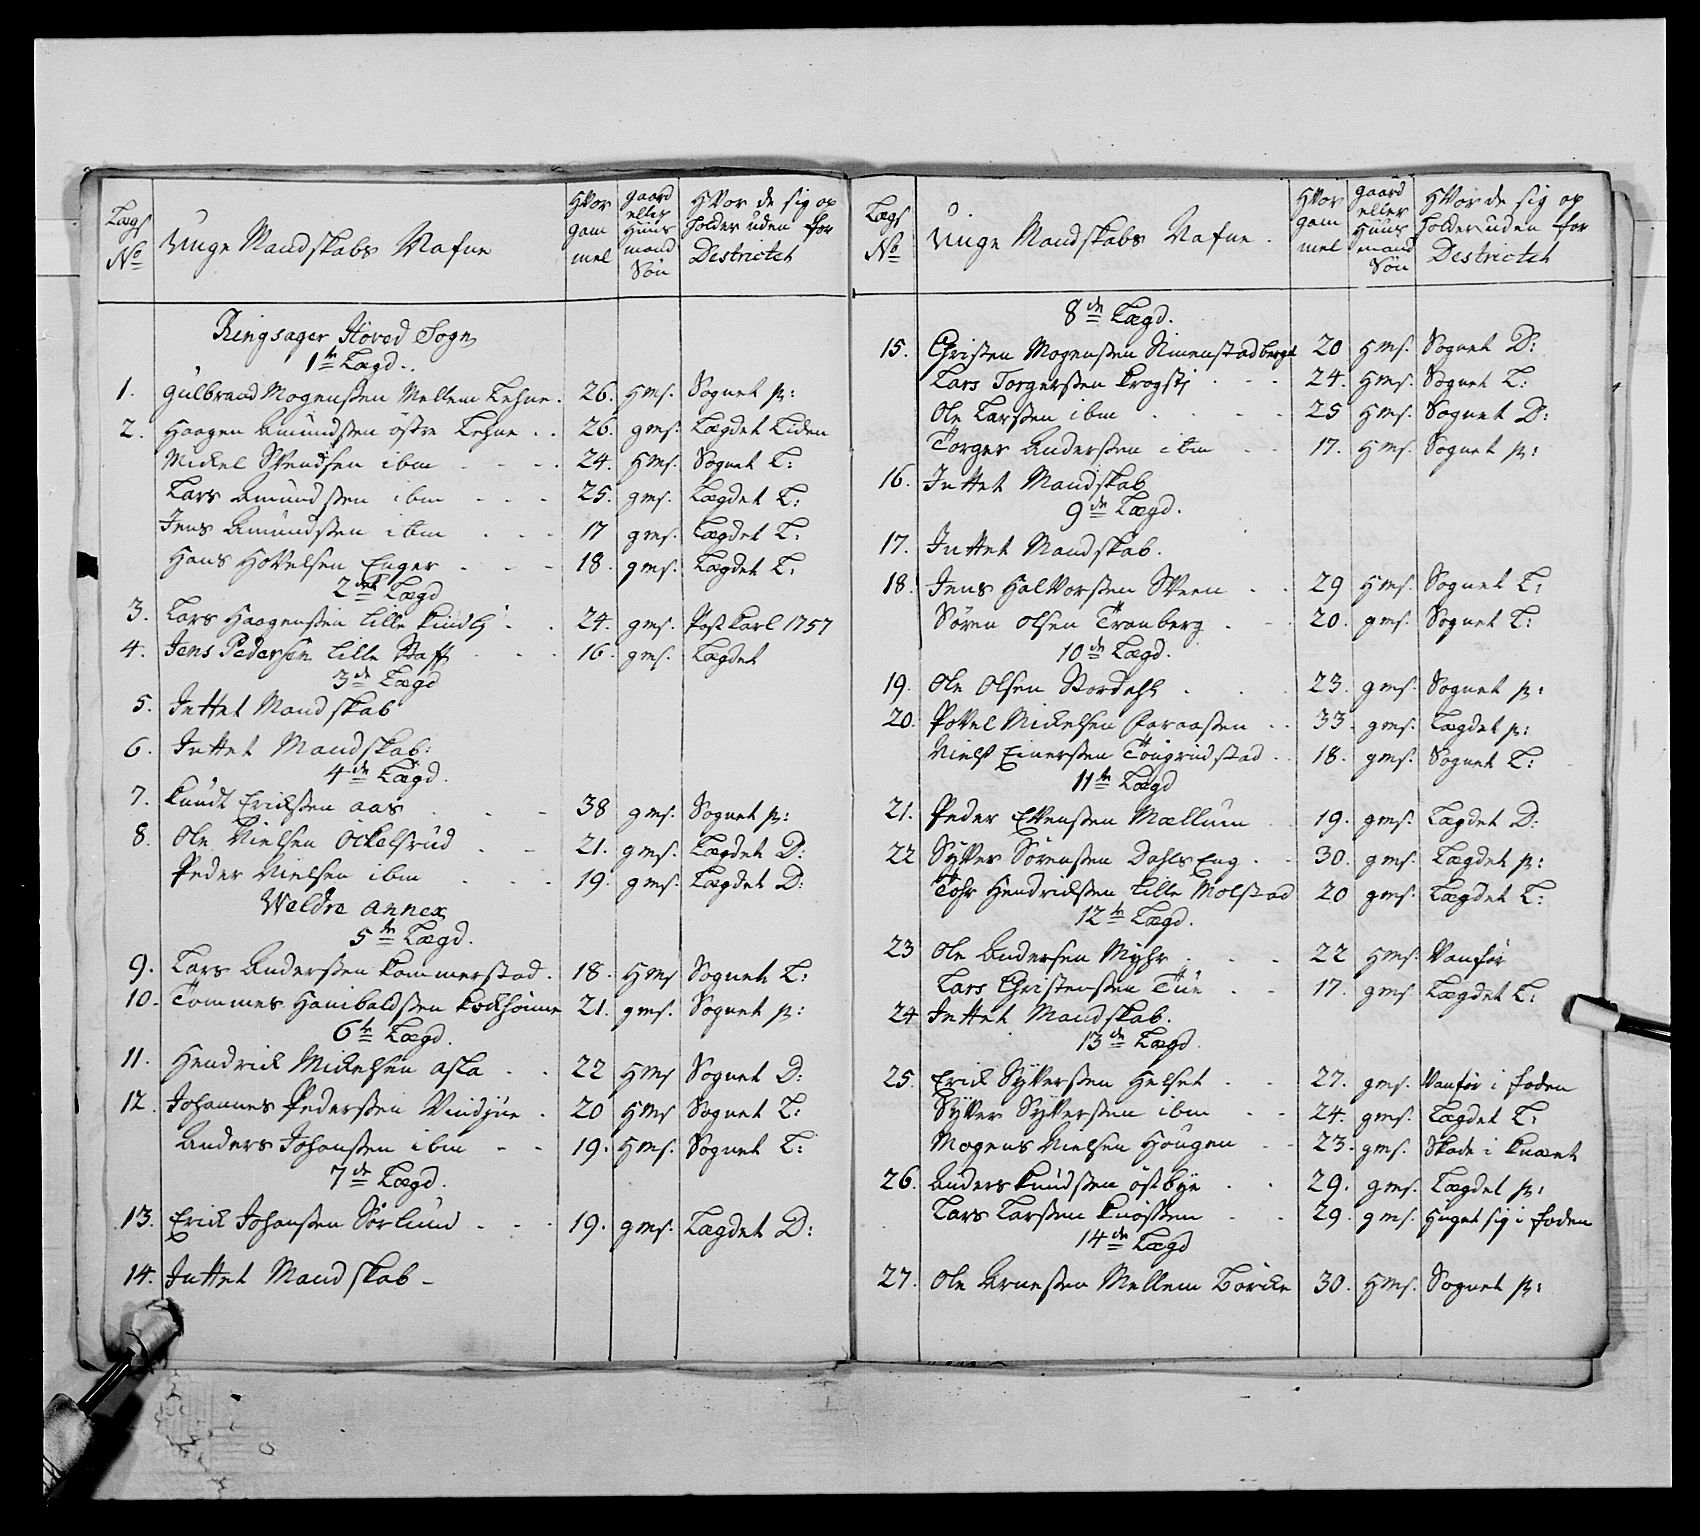 Lægs No
Unge Mandskabs Nafne
Hvor gam mel
gaard eller Huus mand Søn
Hvor de sig op holder uden for Destrictet
Ringsager Hoved Sogn
1te Lægd.
1. Gulbrand Mogenssen Mellem Lehne. 26. Hms. Sognet p:
2. Haagen Amundssen østre Lehne 26. gms. Lægdet Liden
Mickel Svendsen ibm 24. Hms. Sognet L:
Lars Amundssen ibm 25. gms. Lægdet L:
Jens Amundssen ibm 17 gms. Lægdet L:
Hans Hovelsen Enger 18. gms. Lægdet L:
2det Lægd
3. Lars Haagenssen Lille 24. gms. Postkarl 1757
4. Jens Pedersen Lille Staff 16. gms. Lægdet
3de Lægd
5. Inttet Mandskab
6. Inttet Mandskab:
4de Lægd.
7. Knudt Erickssen aas 38 gms. Sognet p:
8. Ole Nielsen Ockelsrud 21. gms. Lægdet D:
Peder Nielsen ibm 19. gms. Lægdet D:
Weldre Annex
5te Lægd.
9. Lars Anderssen Kammerstad. 18. Hms Sognet L:
10. Tommes Hanibaldssen 21. gms. Sognet p:
6te Lægd.
11. Hendrick Mickelsen Aska 22 Hms Sognet D:
12. Johannes Pederssen Windjue 20 Hms Sognet L:
Anders Johanssen ibm 19. Hms. Sognet L:
7de Lægd.
13. Erick Johanssen Sørlund 19. gms. Lægdet D:
14. Inttet Mandskab
Lægs No
Unge Mandskabs Nafne.
Hvor gam mel
gaard eller Huus mand Søn
Hvor de sig op holder uden for Destrictet
8de Lægd.
15. Christen Mogenssen 20 Hms. Sognet D:
Lars Torgerssen Krogstj 24. Hms. Sognet L:
Ole Larssen ibm 25 Hms. Sognet D:
Torger Anderssen ibm 17. Hms. Sognet p:
16. Inttet Mandskab
9de Lægd.
17. Inttet Mandskab.
18. Jens Halvorssen Sveen 29 Hms. Sognet L:
Søren Olsen Tranberg 20. gms. Sognet L:
10de Lægd.
19. Ole Olsen Stordahl 23. gms. Sognet p:
20. Povel Mickelsen Faraassen 33. gms. Lægdet p:
Niels Einerssen 18. gms. Sognet L:
11te Lægd
21. Peder Evenssen Mællum 19. gms. Lægdet D:
22 Syver Sørenssen Dahls Eng 30. gms. Lægdet p:
Tohr Hendrickssen Lille Molstad 20 gms. Lægdet L:
12te Lægd.
23 Ole Andersen Myhr 22 Hms. Vanför
Lars Christenssen Tüe 17. gms Lægdet L:
24 Inttet Mandskab.
13de Lægd.
25. Erick Syverssen Helset 27. gms. Vanför i foden
Syver Syverssen ibm 24. gms. Lægdet L:
Mogens Nielsen Hougen 23. gms. Skade i Knæet
26. Anders Knudssen østbye 29. gms. Lægdet p:
Lars Larssen Knössen 29. gms. Huget sig i foden
14de Lægd
27. Ole Arnessen Mellem Börcke 30. Hms. Sognet p: